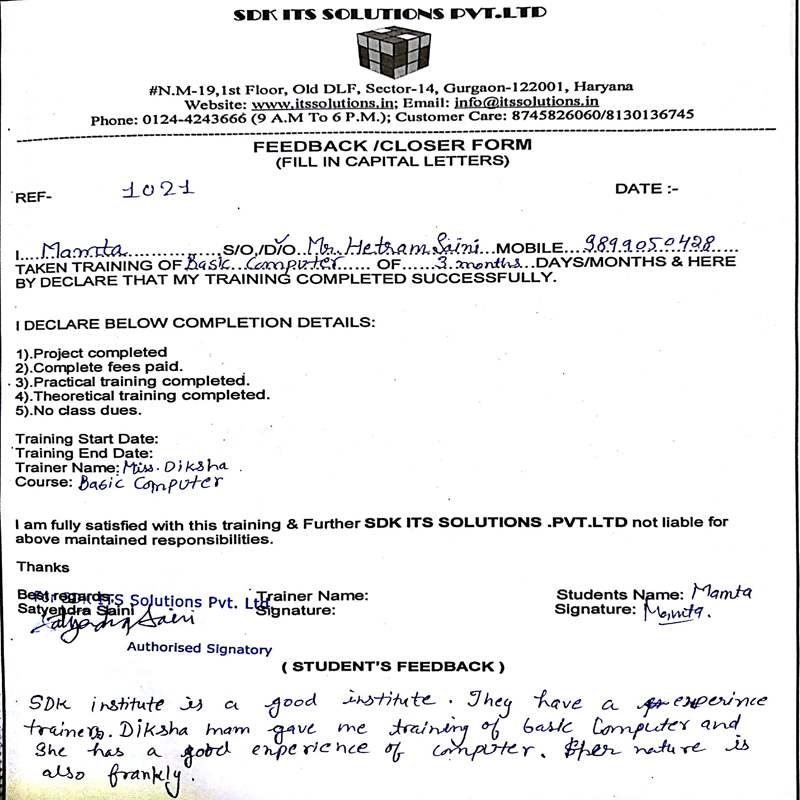 SDK ITS SOLUTIONS PVT.LTD
#N.M-19,1st Floor, Old DLF, Sector-14, Gurgaon-122001, Haryana
Website: www.itssolutions.in; Email: info@itssolutions.in
Phone: 0124-4243666 (9 A.M To 6 P.M.); Customer Care: 8745826060/8130136745
FEEDBACK /CLOSER FORM
(FILL IN CAPITAL LETTERS)
REF- 1021 DATE :-
I....Mamta....................S/O,/D/O..Mr. Hetram Saini...MOBILE...9899050428.....
TAKEN TRAINING OF Basic Computer...... OF......3 months...DAYS/MONTHS & HERE
BY DECLARE THAT MY TRAINING COMPLETED SUCCESSFULLY.
I DECLARE BELOW COMPLETION DETAILS:
1).Project completed
2).Complete fees paid.
3).Practical training completed.
4).Theoretical training completed.
5).No class dues.
Training Start Date:
Training End Date:
Trainer Name: Miss. Diksha
Course: Basic Computer
I am fully satisfied with this training & Further SDK ITS SOLUTIONS .PVT.LTD not liable for
above maintained responsibilities.
Thanks
Best regards, For SDK ITS Solutions Pvt. Ltd Trainer Name: Students Name: Mamta
Satyendra Saini Signature: Signature: Mamta.
Satyendra Saini
Authorised Signatory
( STUDENT'S FEEDBACK )
SDK institute is a good institute. They have a experince
trainers. Diksha mam gave me training of basic Computer and
She has a good enperience of computer. her nature is
also frankly.